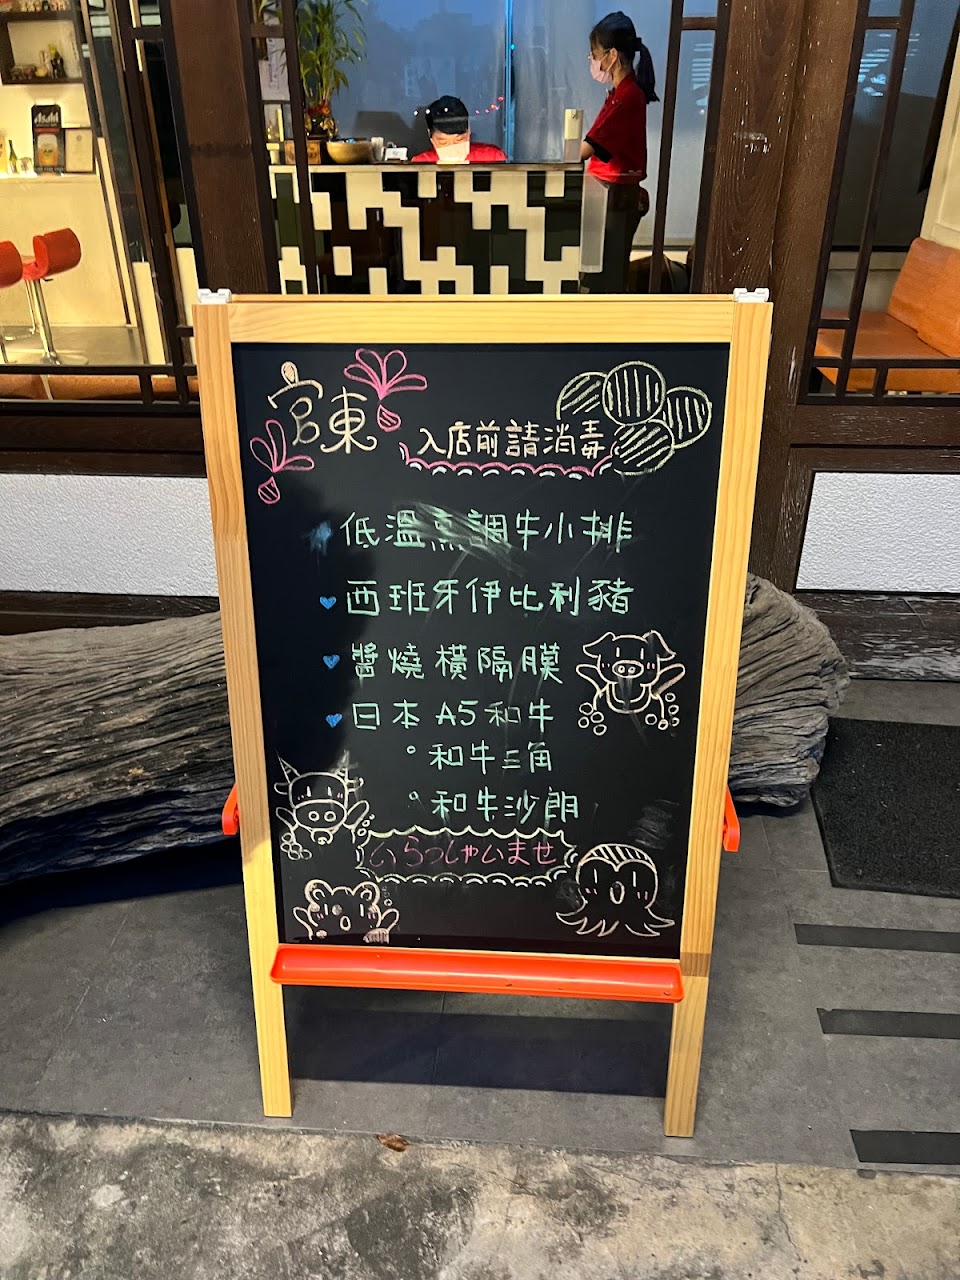 宮東
入店前請消毒
低溫烹調牛小排
西班牙伊比利豬
醬燒橫隔膜
日本A5和牛
。和牛三角
。和牛沙朗
いらっしゃいませ
Asahi